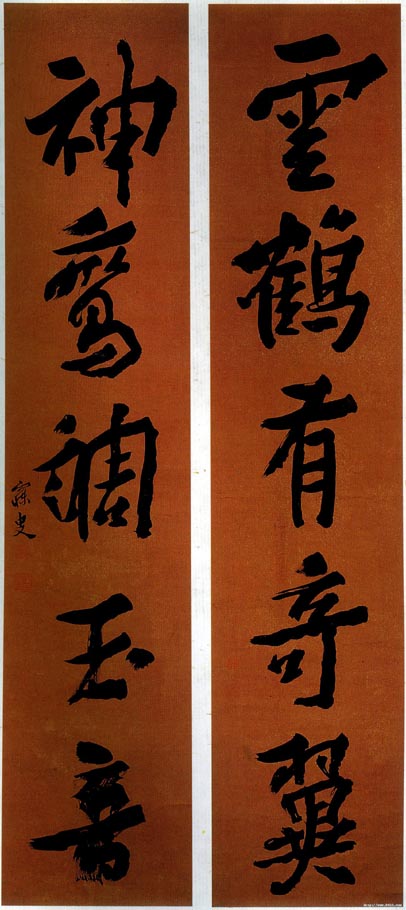 雲鶴有奇翼
神鸞調玉音
寐叟